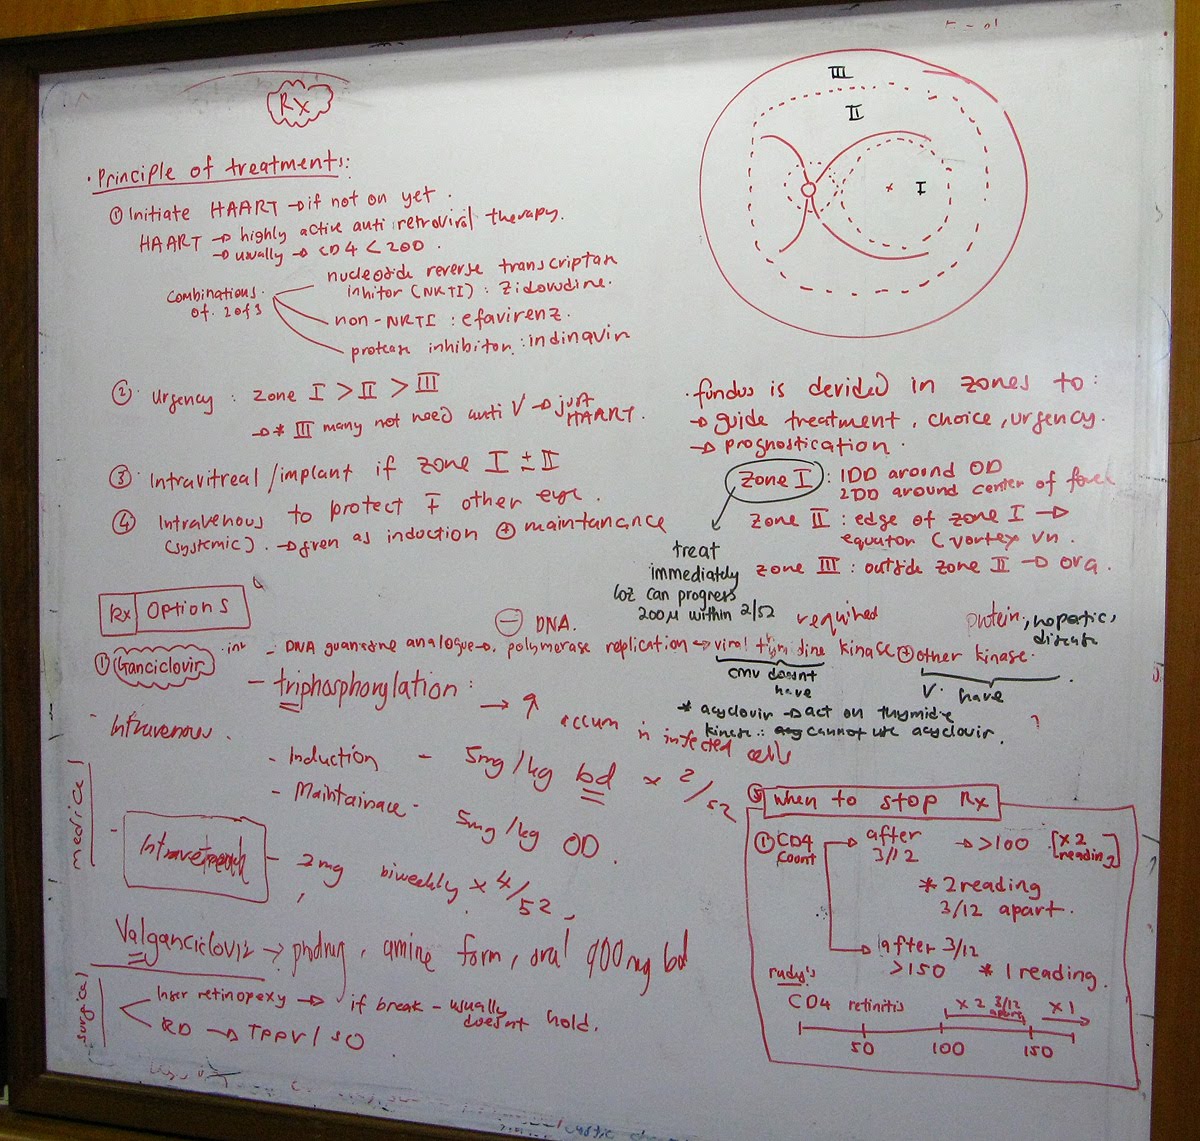 Rx
. Principle of treatments:
① Initiate HAART → if not on yet.
HAART → highly active anti retroviral therapy.
→ usually → CD4 < 200.
combinations of. 2 of 3
nucleoside reverse transcriptase
inhitor (NRTI) : zidovudine.
non-NRTI : efavirenz.
protease inhibitor : indinavir
② Urgency : zone I > II > III
→ * III many not need anti V → just HAART.
③ Intravitreal / implant if zone I ± II
④ Intravenous to protect other eye.
(systemic). → given as induction ⊕ maintanance
III
II
I
. fundus is devided in zones to :
→ guide treatment, choice, urgency.
→ prognostication.
Zone I : 1DD around OD
2DD around center of fovea
zone II : edge of zone I →
equator (vortex vn.
zone III : outside zone II → ora.
treat
immediately
coz can progress
200µ within 2/52
Rx Options
① Ganciclovir
⊖ DNA.
required
protein, hepatic,
- DNA guanosine analogue → polymerase replication viral thymidine kinase ⊕ other kinase.
CMV doesnt have
V. have
- triphosphorylation :
→ ↑ accum in infected cells
* acyclovir → act on thymidine
kinase ∴ cannot use acyclovir.
medical
- Intravenous.
- Induction - 5mg/kg bd x 2/52
- Maintainace - 5mg/kg OD.
- 2mg biweekly x 4/52,
Valganciclovir → prodrug, amine form, oral 900mg bd
surgical
laser retinopexy → if break - usually doesnt hold.
RD → TPPV / SO
⑤ when to stop Rx
① CD4 count
after 3/12 → >100 [x 2 reading]
* 2 reading
3/12 apart.
after 3/12
>150 * 1 reading.
CD4 retinitis x 2 3/12 apart x 1
50 100 150